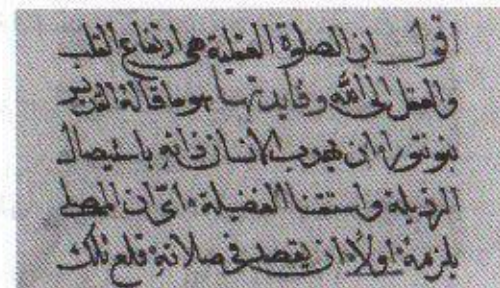 اقول ان الصلوة العقلية هي ارتفاع القلب
والعقل الى الله وفايدتها هو ما قاله القديس
بنونتورا ان يهذب الانسان ذاته باستيصال
الرذيلة واستقنا الفضيلة اي ان المصلي
يلزمه اولاً ان يقصد في صلاته قلع تلك